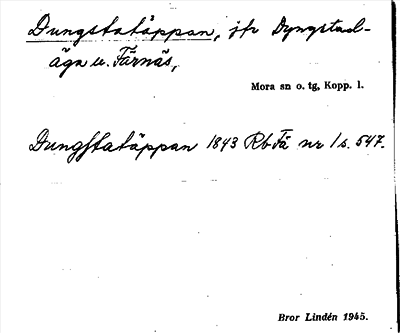 Dungstatäppan, jfr Dyngstad-
äga u. Färnäs,
Mora sn o. tg, Kopp. l.
Dungstatäppan 1843 Rb Fä nr 1 s. 547.
Bror Lindén 1945.